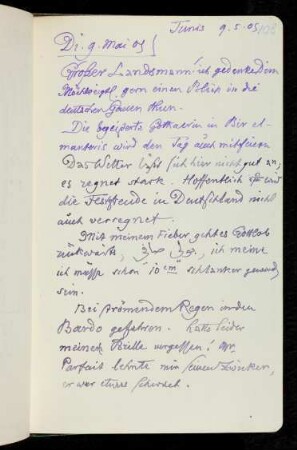 Tunis 9.5.05
Di. 9. Mai 05
Großer Landsmann! ich gedenke dein
gern einen Blick in die
deutschen Gauen thun.
Die in Bir el-
wird den Tag auch mitfeiern
Das Wetter läßt sich hier nicht gut an,
es regnet stark. Hoffentlich
die Festfreude in Deutschland nicht
auch verregnet.
Mit meinem Fieber geht es Gottlob
rückwärts, ich meine
ich müsse schon 10 cm schlanker geworden
sein.
Bei strömendem Regen in den
Bardo gefahren. hatte leider
meine Brille vergessen! Mr.
Parfait lehnte mir seinen Zwicker,
er war etwas schwach.